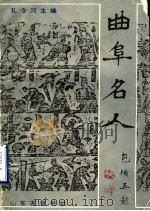 孔令河主编
曲阜名人
包備五題